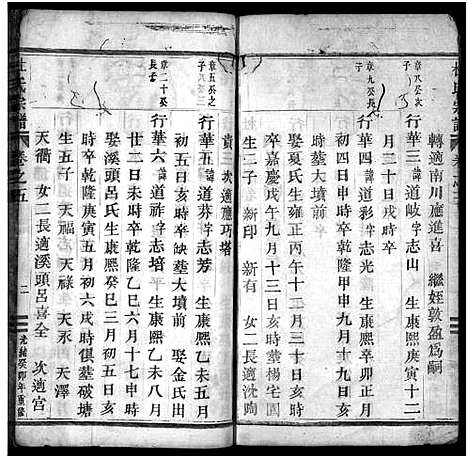 轉適南川應進喜　繼姪敦盈為嗣
章八癸次子
行華三諱道岐字志山　生康熙庚寅十二
月三十日戌時卒
章九癸長子
行華四諱道彩字志光　生康熙辛卯正月
初四日申時卒乾隆甲申九月十九日亥
時葬大墳前
娶夏氏生雍正丙午十二月三十日亥
時卒乾隆九月十三日亥時葬楊宅園
生二子　新印　新有　女二長適沈陶
杜氏宗譜　卷之五　二　光緒癸卯年重修
貴三次適應巧塔
章五癸之子
行華五諱道芬字志芳　生康熙乙未五月
初五日亥時卒缺葬大墳前　娶金氏出
章二十癸長子
行華六諱道祚字志培　生康熙乙未八月
廿二日未時卒乾隆乙巳六月十七申時
娶溪頭呂氏生康熙癸巳三月初五日亥
時卒乾隆庚寅五月六戌時俱葬破塘
生五子　天福　天祿　天永　天澤
天衢　女二長適溪頭呂喜全　次適宫